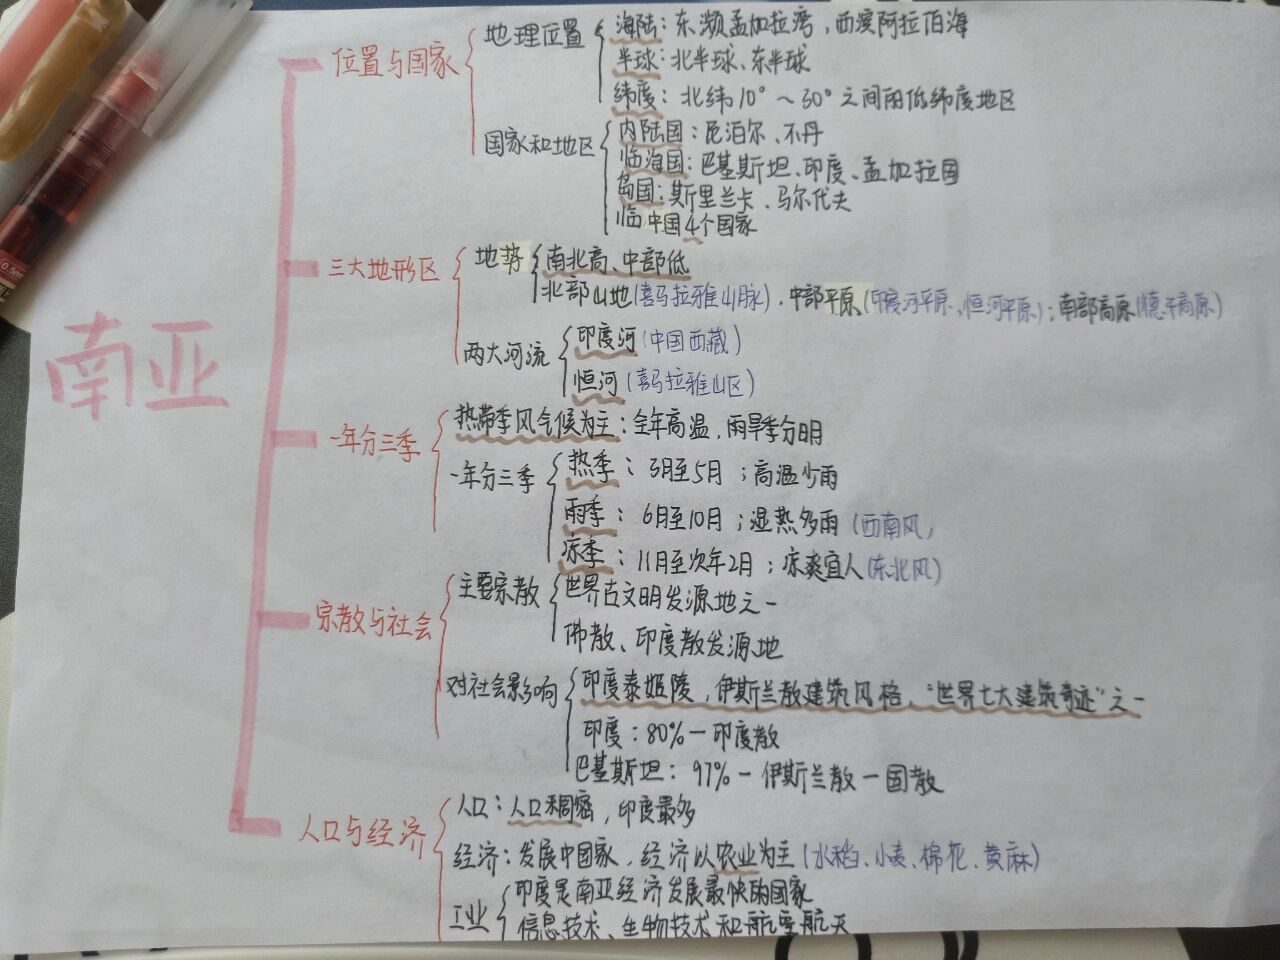 南亚
位置与国家
地理位置
海陆：东濒孟加拉湾，西滨阿拉伯海
半球：北半球、东半球
纬度：北纬10°～30°之间的低纬度地区
国家和地区
内陆国：尼泊尔、不丹
临海国：巴基斯坦、印度、孟加拉国
岛国：斯里兰卡、马尔代夫
临中国4个国家
三大地形区
地势
南北高、中部低
北部山地(喜马拉雅山脉)，中部平原(印度河平原，恒河平原)；南部高原(德干高原)
两大河流
印度河(中国西藏)
恒河(喜马拉雅山区)
一年分三季
热带季风气候为主：全年高温，雨旱季分明
一年分三季
热季：3月至5月；高温少雨
雨季：6月至10月；湿热多雨(西南风)
凉季：11月至次年2月；凉爽宜人(东北风)
宗教与社会
主要宗教
世界古文明发源地之一
佛教、印度教发源地
对社会影响
印度泰姬陵，伊斯兰教建筑风格，"世界七大建筑奇迹"之一
印度：80%—印度教
巴基斯坦：97%—伊斯兰教—国教
人口与经济
人口：人口稠密，印度最多
经济：发展中国家，经济以农业为主(水稻、小麦、棉花、黄麻)
工业
印度是南亚经济发展最快的国家
信息技术、生物技术和航空航天